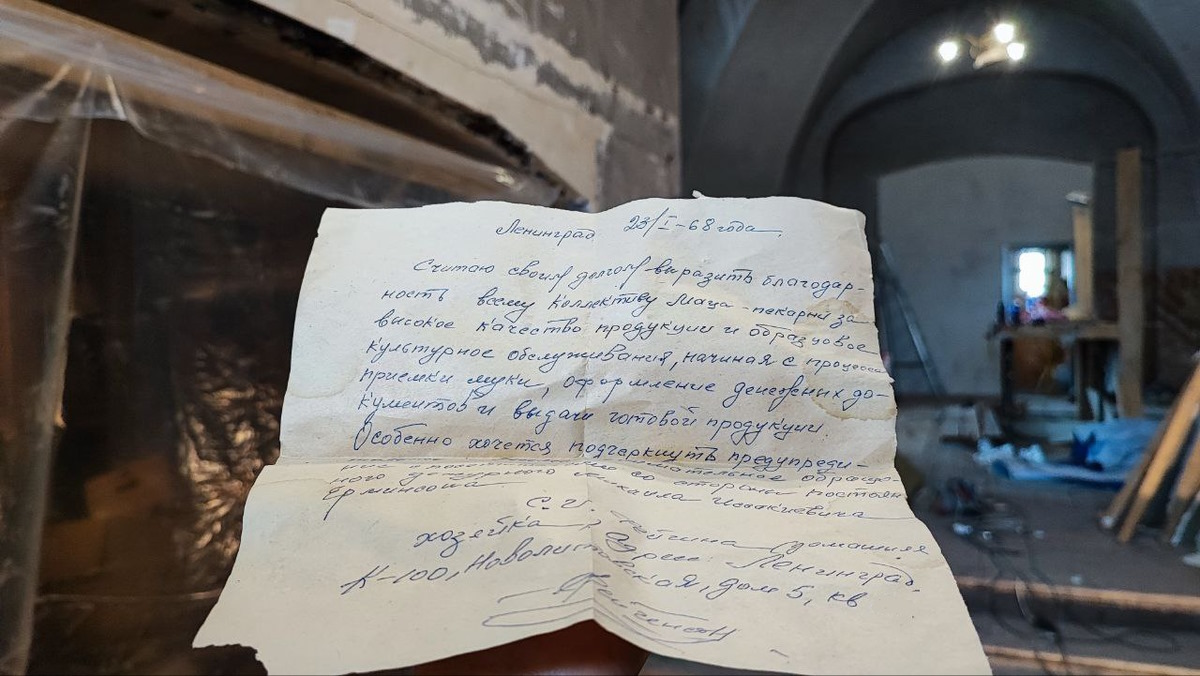 Ленинград 23/I-68 года.
Считаю своим долгом выразить благодар-
ность всему коллективу Маца-пекарни за
высокое качество продукции и образцовое
культурное обслуживания, начиная с процесса
приемки муки, оформление денежных до-
кументов и выдачи готовой продукции.
Особенно хочется подчеркнуть предупреди-
обраще-
ного со стороны постоян-
Михаила Исаакиевича
С.И. домашняя
хозяйка, адрес: Ленинград,
К-100, Новолитовская, дом 5, кв